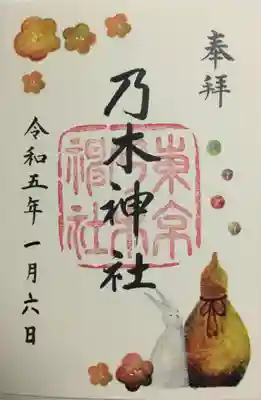 奉拝
乃木神社
東京
乃木
神社
令和五年一月六日